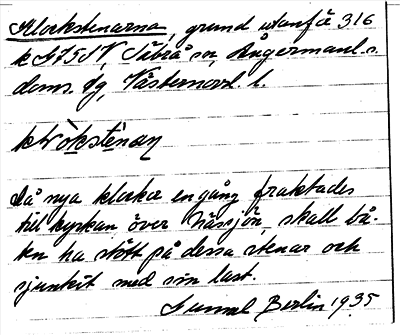 Klockstenarna, grund utanför 316
k G I75 N, Sibrå sn, Ångermanl. s.
doms. dg, Västernorrl. l.
Då nya klockor en gång fraktades
till kyrkan över Näsjön, skall bå-
ten ha stött på dessa stenar och
sjunkit med sin last.
Gunnel Berlin 1935